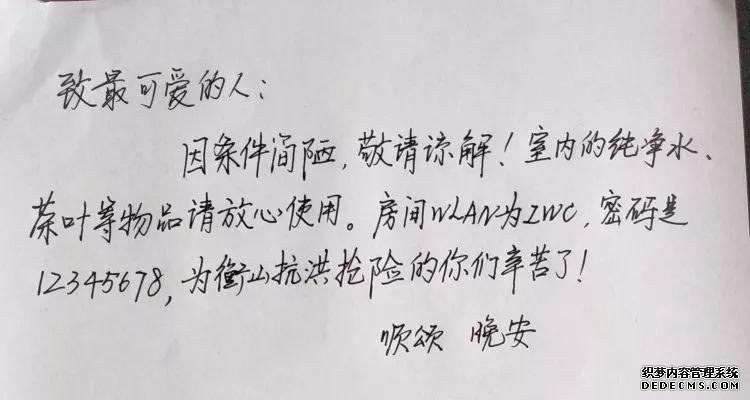 致最可爱的人：
因条件简陋，敬请谅解！室内的纯净水、
茶叶等物品请放心使用。房间WLAN为ZWC，密码是
12345678，为衡山抗洪抢险的你们辛苦了！
顺颂 晚安
织梦内容管理系统
DEDECMS.COM